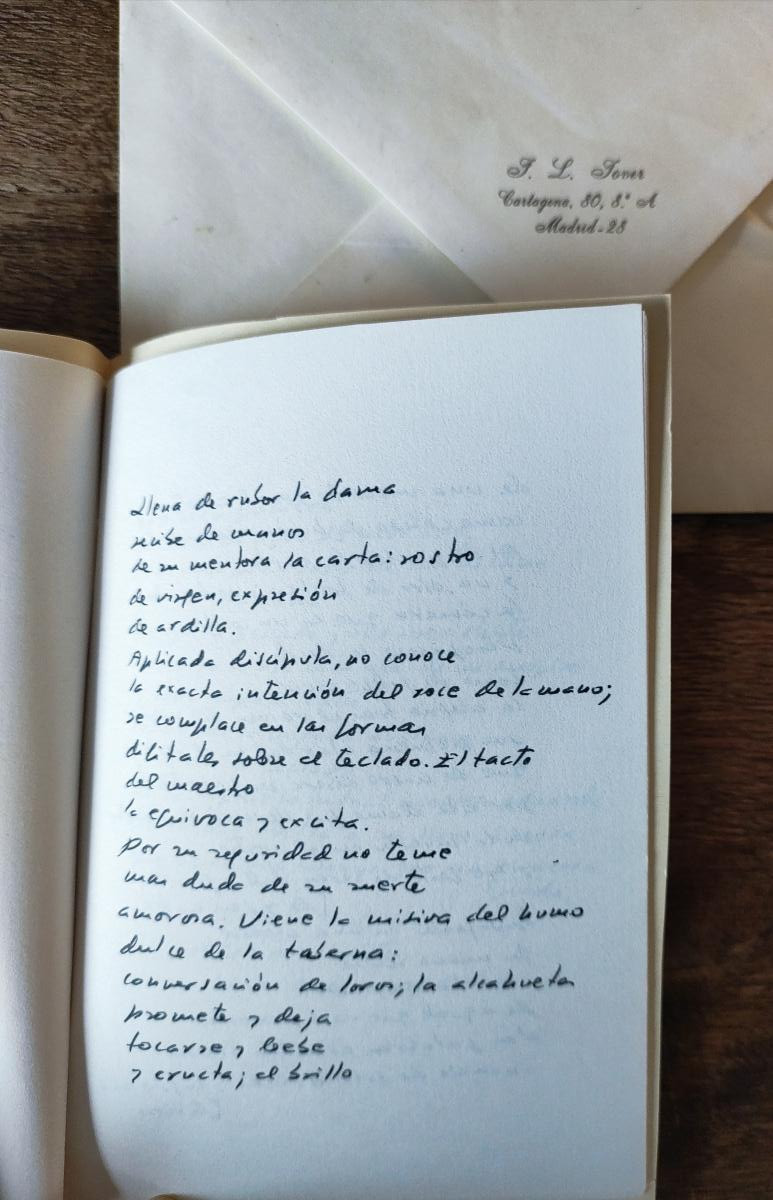 J. L. Jover
Cartagena, 80, 8.º A
Madrid-28
Llena de rubor la dama
recibe de manos
de su mentora la carta: rostro
de virgen, expresión
de ardilla.
Aplicada discípula, no conoce
la exacta intención del roce de la mano;
se complace en las formas
digitales sobre el teclado. El tacto
del maestro
la equivoca y excita.
Por su seguridad no teme
mas duda de su suerte
amorosa. Viene la misiva del humo
dulce de la taberna:
conversación de loros; la alcahueta
promete y deja
tocarse y bebe
y eructa; el brillo